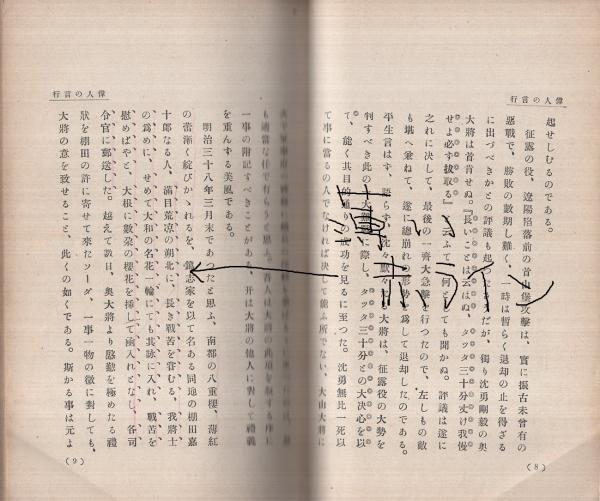 偉人の言行
起せしむるのである。
征露の役、遼陽陷落前の首山堡攻擊は、實に振古未曾有の
惡戰で、勝敗の數期し難く、一時は暫らく退却の止を得ざる
に出づべきかとの評議も起つた だが、獨り沈勇剛毅の奧
大將は首肯せぬ。『長いことは はぬ、タッタ三十分丈け我慢
せよ必ず拔取る』 云ふて 何としても聞かぬ。評議は遂に
之れに決して、最後の一齊大急擊を行つたので、左しもの敵
も堪へ兼ねて、遂に總崩れの形勢を爲して退却したのである。
平生言はず、語らず、沈々默々 大將は、征露役の大勢を
判すべき此の 大 際し、タッタ三十分との大決心を以
て、能く其目的通りの成功を見るに至つた。沈勇無比一死以
て事に當るの人でなければ決して能ふ所でない、大山大將に
(8)
薄い
赤ライン
偉人の言行
も適當な任で有らうと思ふ。
一事の附記すべきことがある、并は大將の他人に對して禮義
を重んずる美風である。
明治三十八年三月末であつたと思ふ、南都の八重櫻、薄紅
の蕾漸く綻びかゝれるを、篤志家を以て名ある同地の棚田嘉
十郎なる人、滿目荒凉の朔北に、長き戰苦を嘗むる、我將士
の爲めに、せめて大和の名花一輪にても其詠に入れ、戰苦を
慰めばやと、大根に數朶の櫻花を揷して函入れとなし、各司
令官に郵送した。越えて數日、奧大將より慇懃を極めたる禮
狀を棚田の許に寄せて來たソーダ、一事一物の微に對しても、
大將の意を致せること、此くの如くである。斯かる事は元よ
(9)